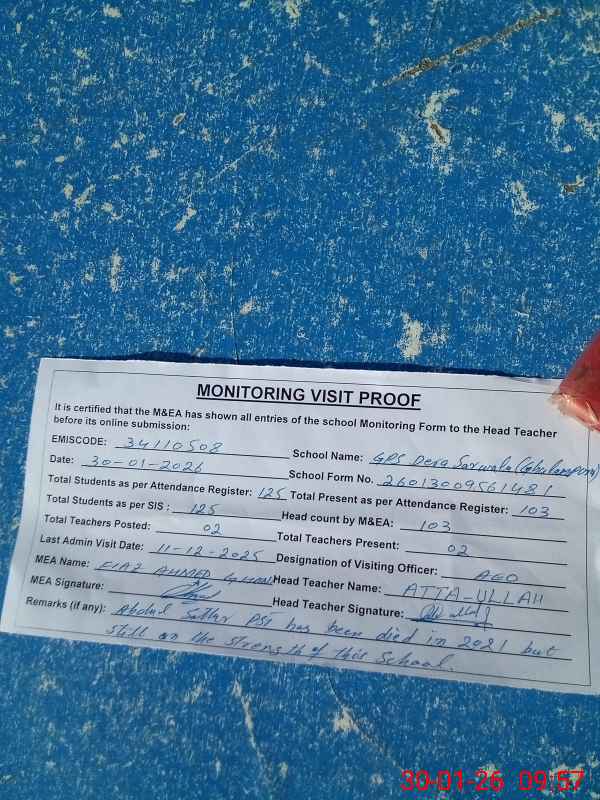 MONITORING VISIT PROOF
It is certified that the M&EA has shown all entries of the school Monitoring Form to the Head Teacher
before its online submission:
EMISCODE: 34110508 School Name: GPS Dera Sarwala (Ghulampura)
Date: 30-01-2026 School Form No. 26013009561481
Total Students as per Attendance Register: 125 Total Present as per Attendance Register: 103
Total Students as per SIS : 125 Head count by M&EA: 103
Total Teachers Posted: 02 Total Teachers Present: 02
Last Admin Visit Date: 11-12-2025 Designation of Visiting Officer: AEO
MEA Name: AHMED Head Teacher Name: ATTA-ULLAH
MEA Signature: Head Teacher Signature:
Remarks (if any): Abdul Sattar PST has been died in 2021 but
still on the strength of this School.
30-01-26 09:57